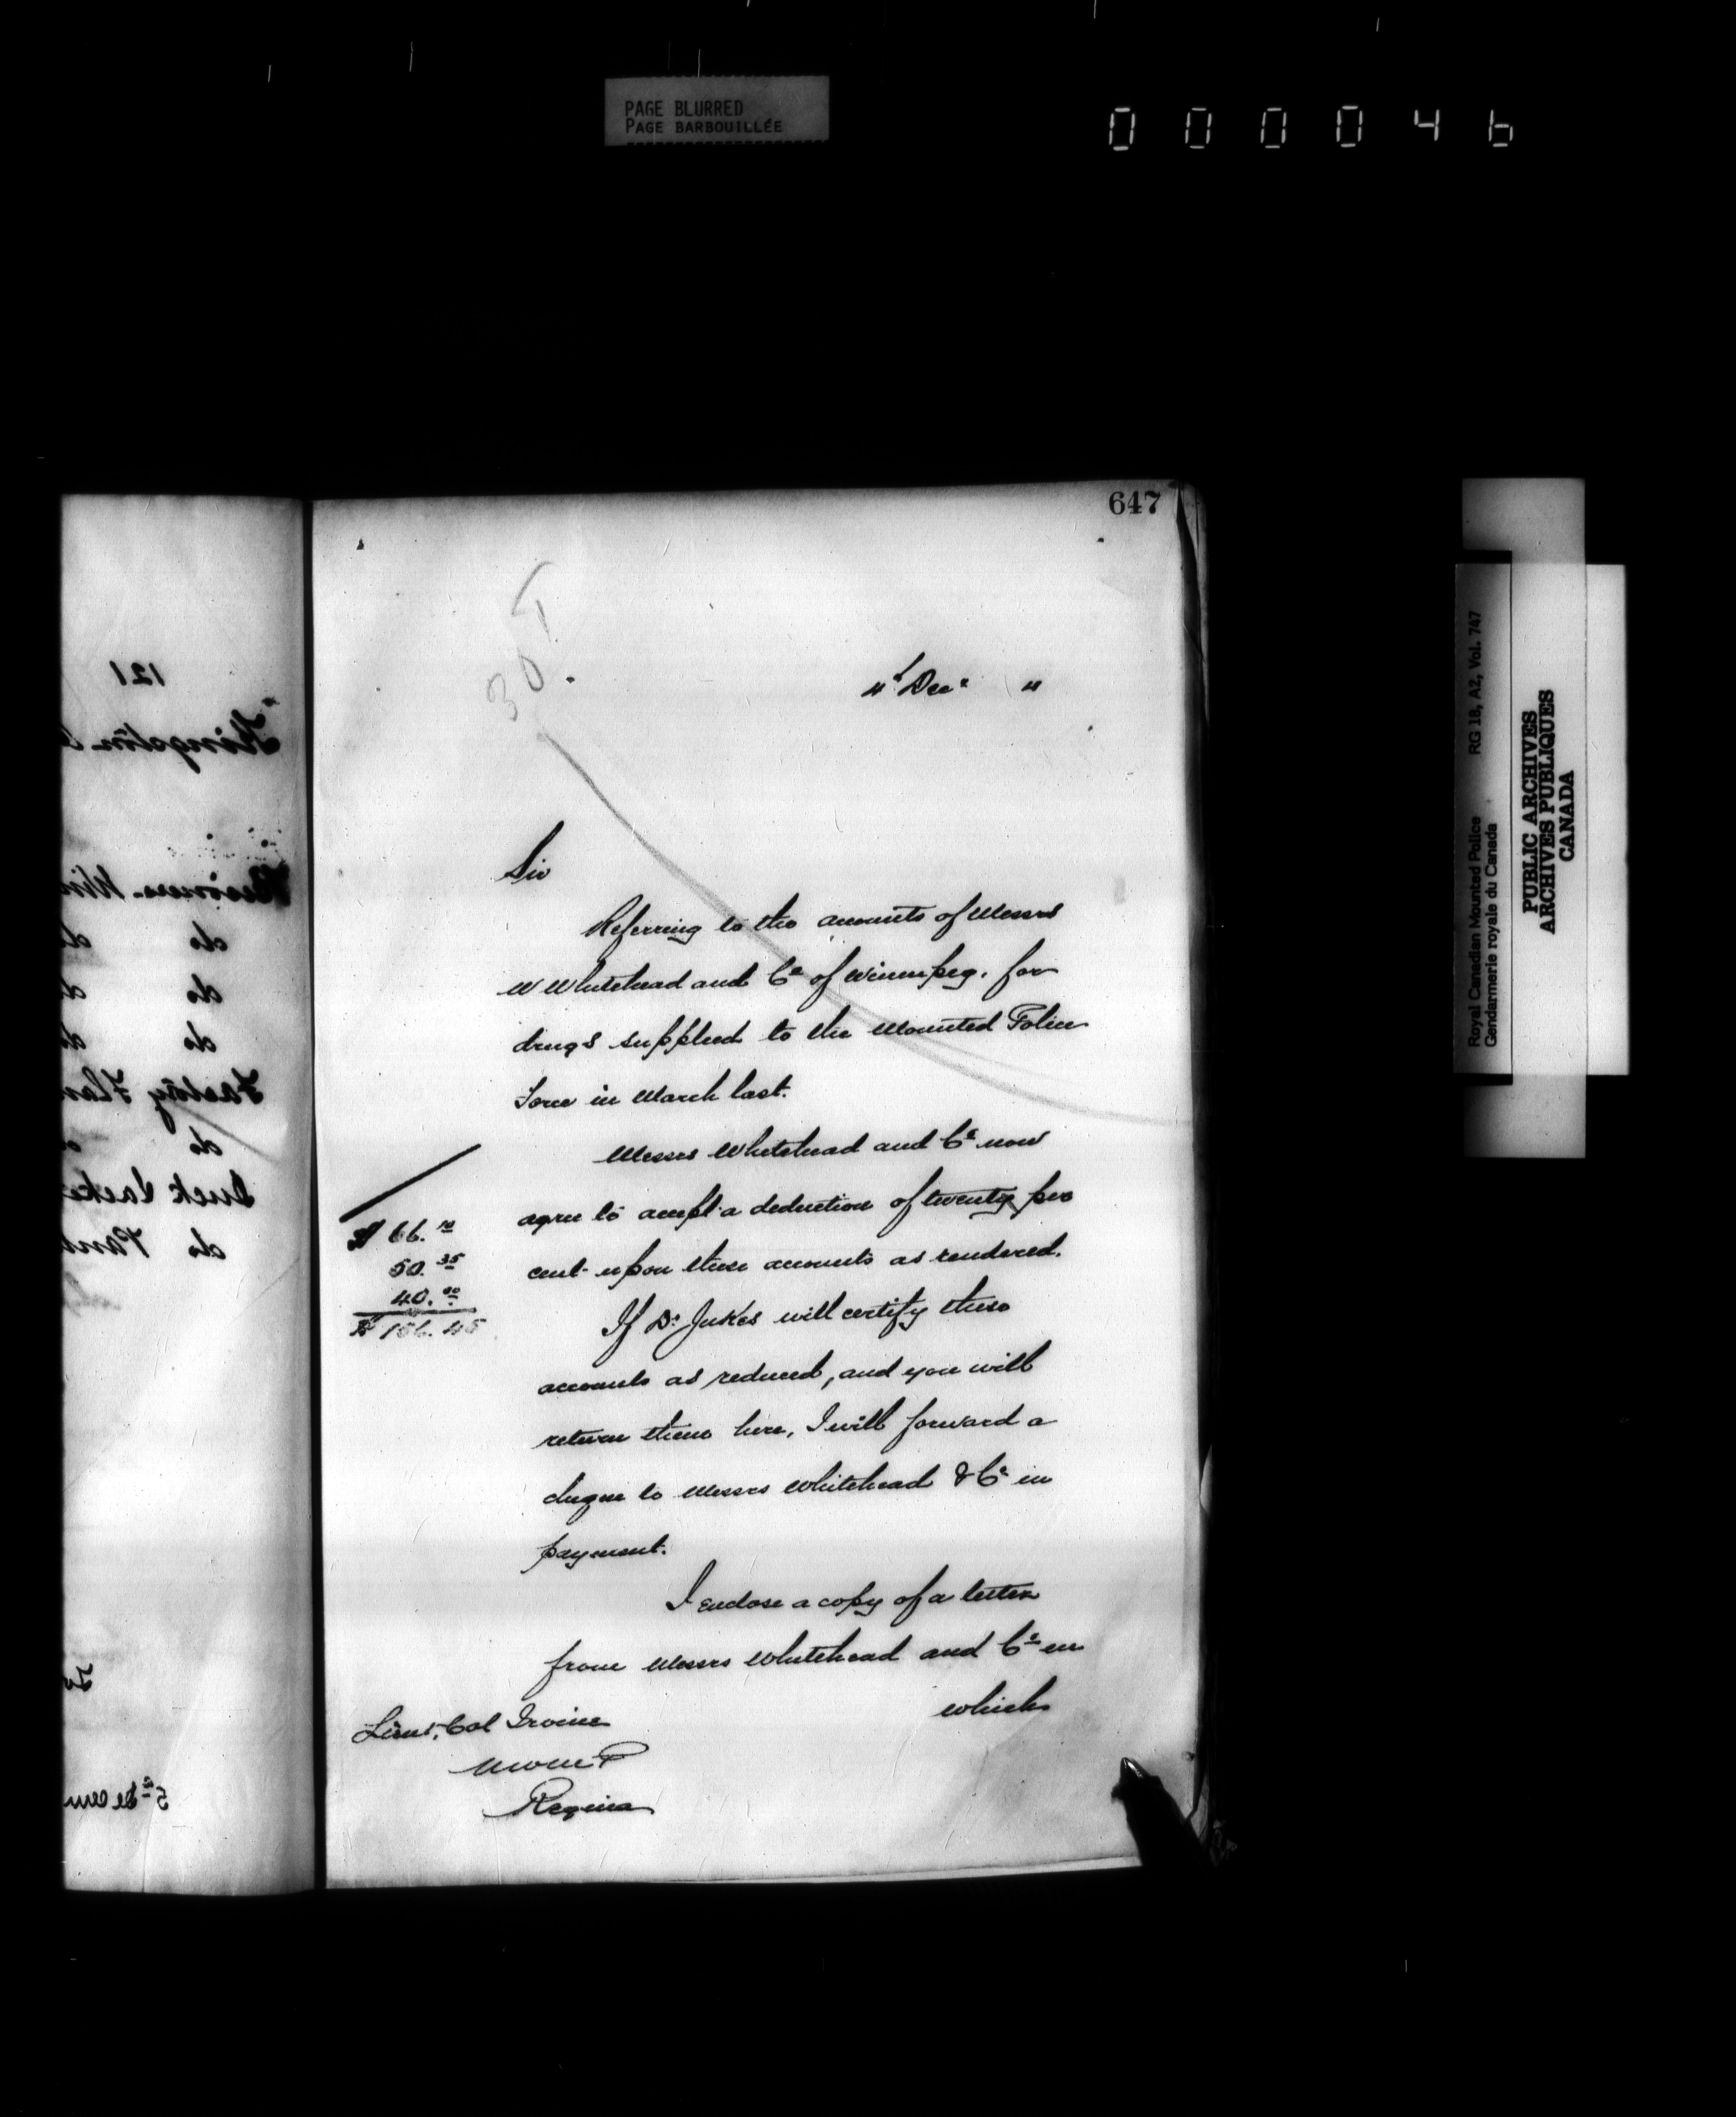 PAGE BLURRED
PAGE BARBOUILLÉE
0 0 0 0 4 6
647
4th Decr "
Sir
Referring to the accounts of Messrs
W Whitehead and Co of Winnipeg. for
drugs supplied to the Mounted Police
Force in March last.
Messrs Whitehead and Co now
agree to accept a deduction of twenty per
cent upon these accounts as rendered.
$ 66.10
50.35
40.00
$ 156.45
If Dr Jukes will certify these
accounts as reduced, and you will
return them here, I will forward a
cheque to Messrs Whitehead & Co in
payment.
I enclose a copy of a letter
from Messrs Whitehead and Co in
which
Lieut. Col Irvine
NWMP
Regina
121
Kingston
do
do
do
Factory
do
Duck
do Pant
5th Decem
Royal Canadian Mounted Police RG 18, A2, Vol. 747
Gendarmerie royale du Canada
PUBLIC ARCHIVES
ARCHIVES PUBLIQUES
CANADA